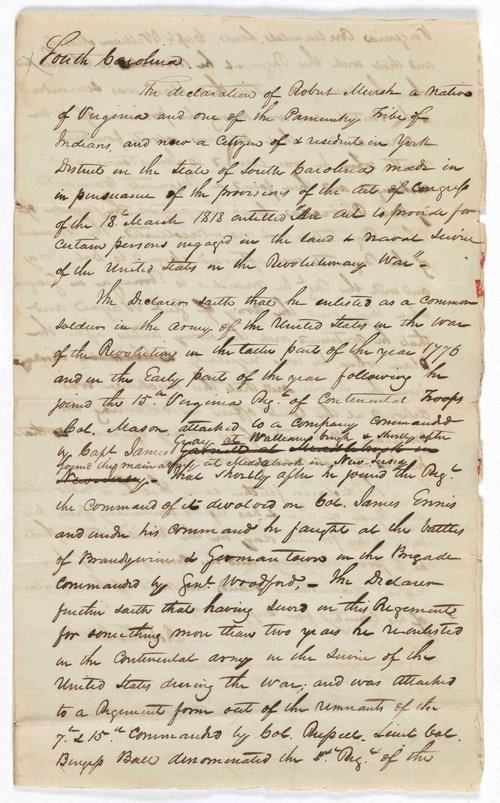 South Carolina
The declaration of Robert Mursh a native
of Virginia and one of the Pamunky Tribe of
Indians, and now a citizen of & resident in York
District in the State of South Carolina made in
in pursuance of the provisions of the Act of Congress
of the 18th March 1818 entitled "An Act to provide for
certain persons engaged in the land & naval Service
of the United States in the Revolutionary War".
The Declarer saith that he enlisted as a common
soldier in the army of the United States in the War
of the Revolution in the latter part of the year 1776
and in the Early part of the year following he
joined the 15th Virginia Regt. of Continental Troops
Col. Mason, attached to a company commanded
by Capt James Gray at Williamsburgh & shortly after
joined the main army at Middlebrook in New Jersey
New Jersey. - That shortly after he joined the Regt.
the command of it devolved on Col. James Ennis
and under his command he faught at the battles
of Brandywine & Germantown in the Brigade
commanded by Genl. Woodford, - The Declarer
further saith that having served in this Regiment
for something more than two years he reenlisted
in the Continental army in the Service of the
United States during the war; and was attached
to a Regiment form out of the remnants of the
7th & 15th Commanded by Col. Russel. Lieut Col.
Burgess Ball denominated the 1st Regt. of the